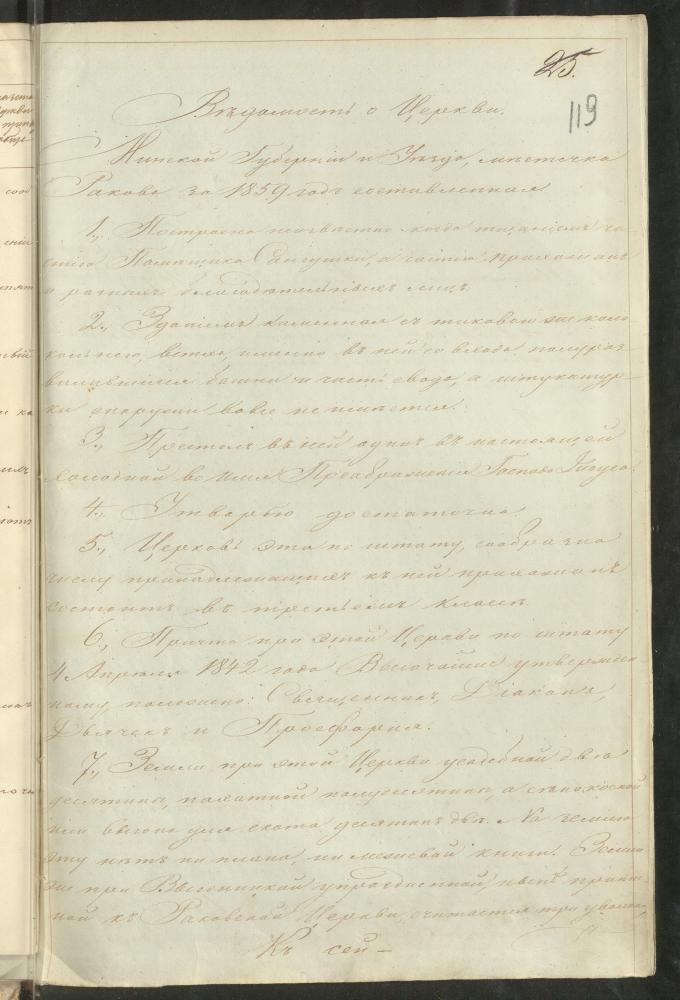 25.
119
Вѣдомость о Церкви.
Минской Губерніи и Уѣзда, мѣстечка
Ракова за 1859 годъ составленная
1., Построена неизвѣстно когда тщаніемъ ча-
стію Помѣщика Сангушки, а частію прихожанъ
и разныхъ благодательныхъ лицъ.
2., Зданіемъ каменная съ таковою же коло
кольнею, ветха, именно въ ней со входа полураз-
валившіяся башни и часть свода, а штукатур-
ки снаружи вовсе не имѣется.
3., Престолъ въ ней одинъ въ настоящей
холодной во имя Преображенія Господа Іисуса.
4., Утварью достаточна.
5., Церковь эта по штату, сообразно
числу принадлежащихъ къ ней прихожанъ
состоитъ въ третьемъ классѣ.
6., Причта при этой Церкви по штату
4 Апрѣля 1842 года Высочайше утвержден-
ному положено: Священникъ, Діаконъ,
Дьячекъ и Просфорня.
7., Земли при этой Церкви усадебной двѣ
десятины, пахатной полдесятины, а сѣнокосной
или выгона для скота десятинъ двѣ. На землю
эту нѣтъ ни плана, ни межевой книги. Земли
же при Выгоницкой упраздненной, нынѣ припис
ной къ Раковской Церкви считается три уволоки,
Къ сей –